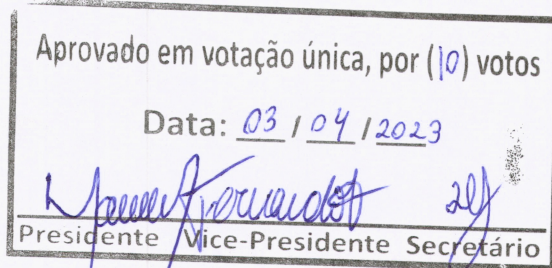 Aprovado em votação única, por (10) votos
Data: 03 / 04 / 2023
Presidente Vice-Presidente Secretário